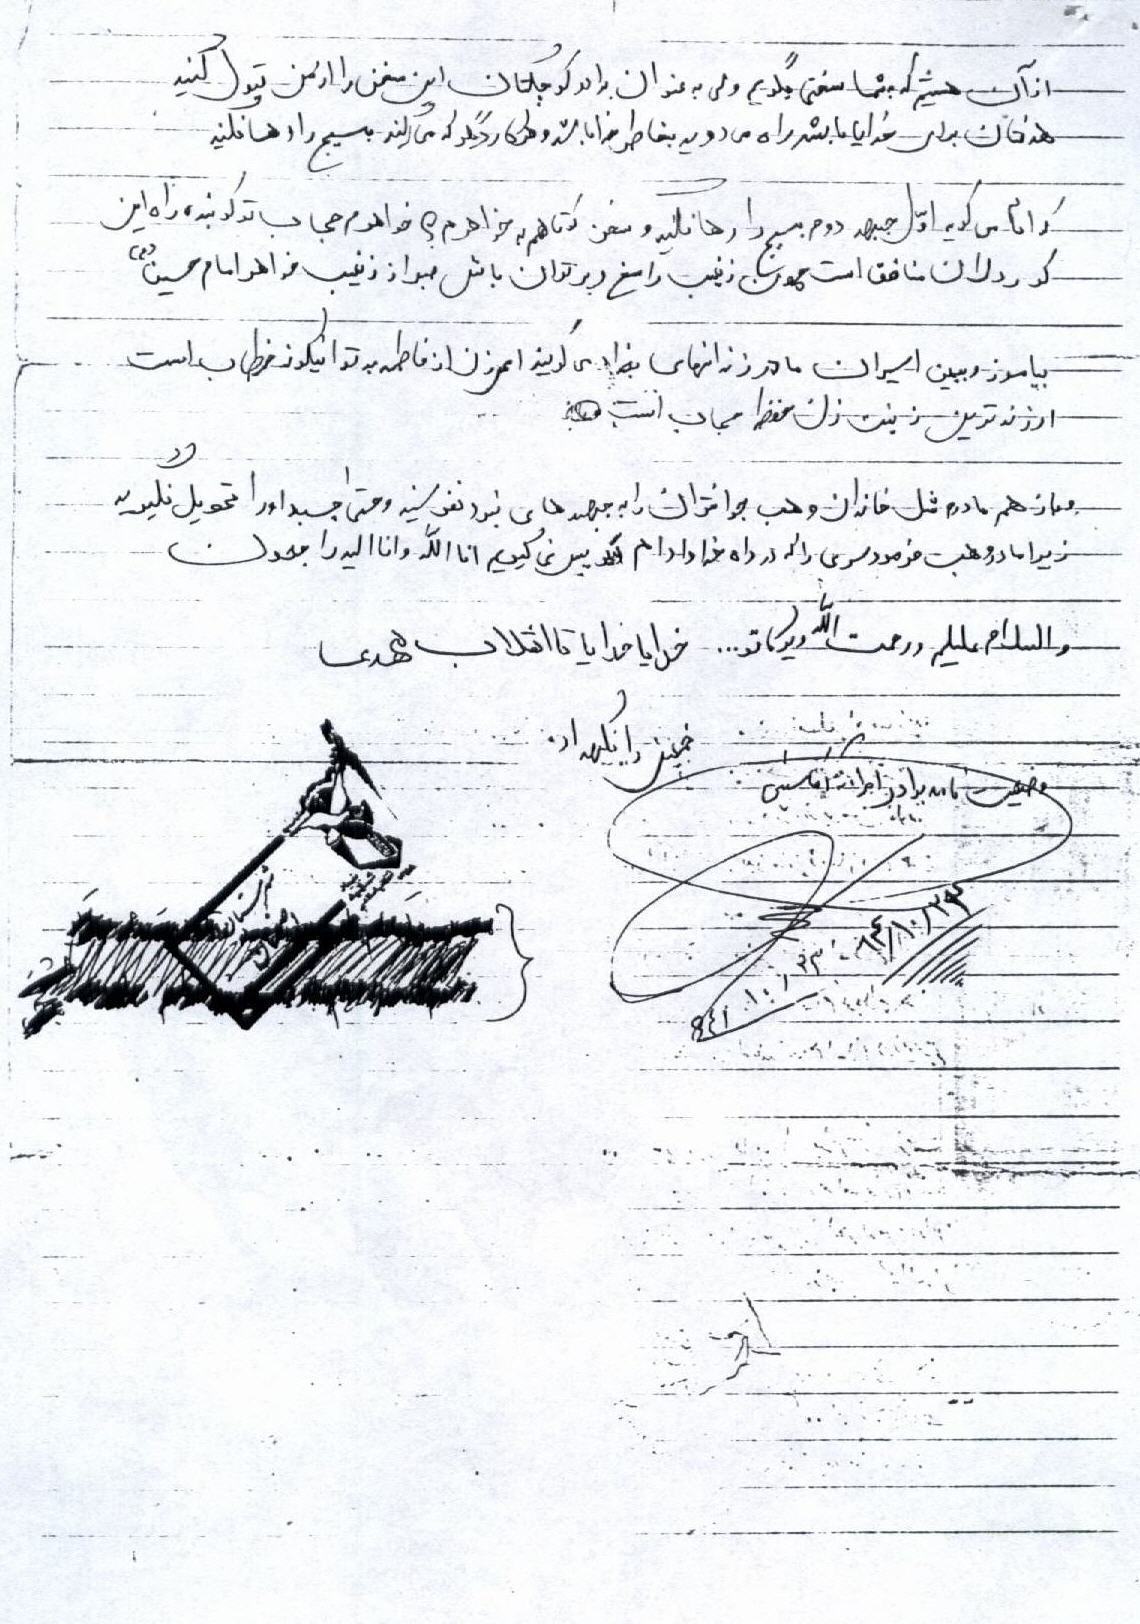 از آن هستم که به شما سخنی بگویم ولی به عنوان برادر کوچکتان این سخن را از من قبول کنید
هدفتان برای خدا باشد راه می دوید بخاطر خدا باشد و هر کار دیگر که می کنید بسیج را رها نکنید
که امام می گوید اول جبهه دوم بسیج را رها نکنید و سخن کوتاهم به خواهرم ای خواهرم حجاب تو کوبنده راه این
کوردلان منافق است چون زینب راسخ و برتران باش صبر از زینب خواهر امام حسین (ع)
بیاموز و ببین اسیران ما در زندانهای بغداد می گویند ای زن از فاطمه به تو اینگونه خطاب است
ارزنده ترین زینت زن حفظ حجاب است
و باز هم مادرم مثل خاندان وهب جوانتان را به جبهه های نبرد بفرستید و حتی جسد او را تحویل نگیرید
زیرا مادر وهب فرمود سری را که در راه خدا داده ام پس نمی گیرم انا الله و انا الیه راجعون
والسلام علیکم و رحمت الله وبرکاته... خدایا خدایا تا انقلاب مهدی
خمینی را نگهدار.
وصیت نامه برادر
۶۴/۱۰/۲۳